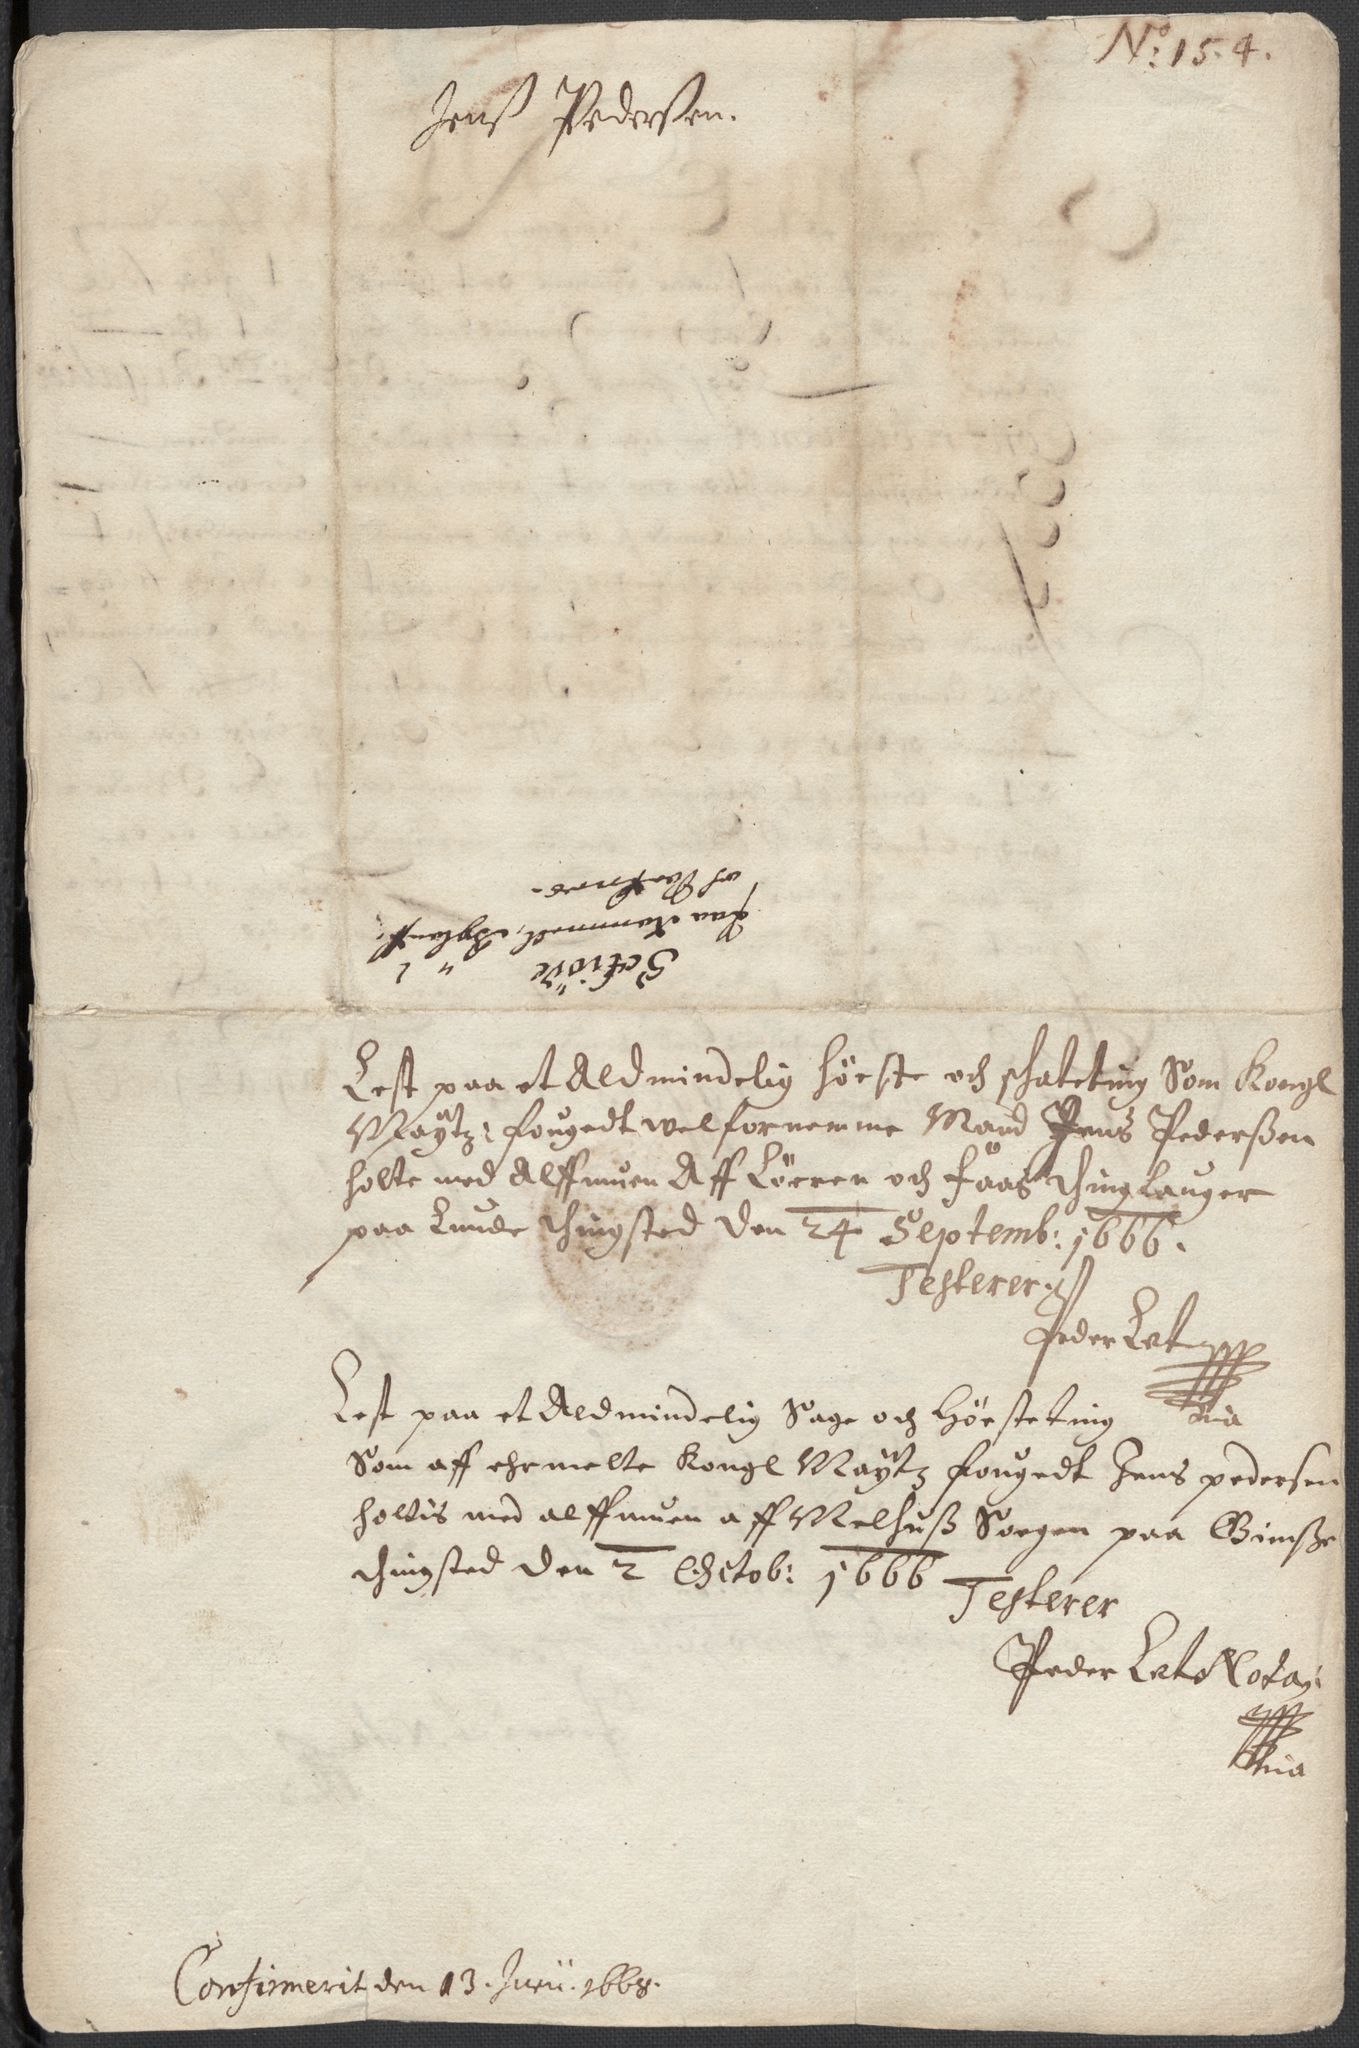 No: 15. 4.
Jens Pedersen.
Schiöde
paa Gammell
Lest paa et Aldmindelig Höeste och schateting Som Kongl
Maÿtz: fougedt welfornemme Mand Jens Pederßen
holte med Alffmuen Aff Löeren och faas thinglauger
paa Lunde thingsted den 24 Septemb: 1666.
Testerer
Peder Lat
mia
Lest paa et Aldmindelig Sage och Höesteting
Som aff ehrmelte Kongl Maÿtz fougedt Jens pedersen
holtis med alffmuen aff Melhuß Soegen paa Gimsße
thingsted den 2 Octob: 1666
Testerer
Peder Lat Notag:
mia
Confirmerit den 13. Junÿ. 1668.